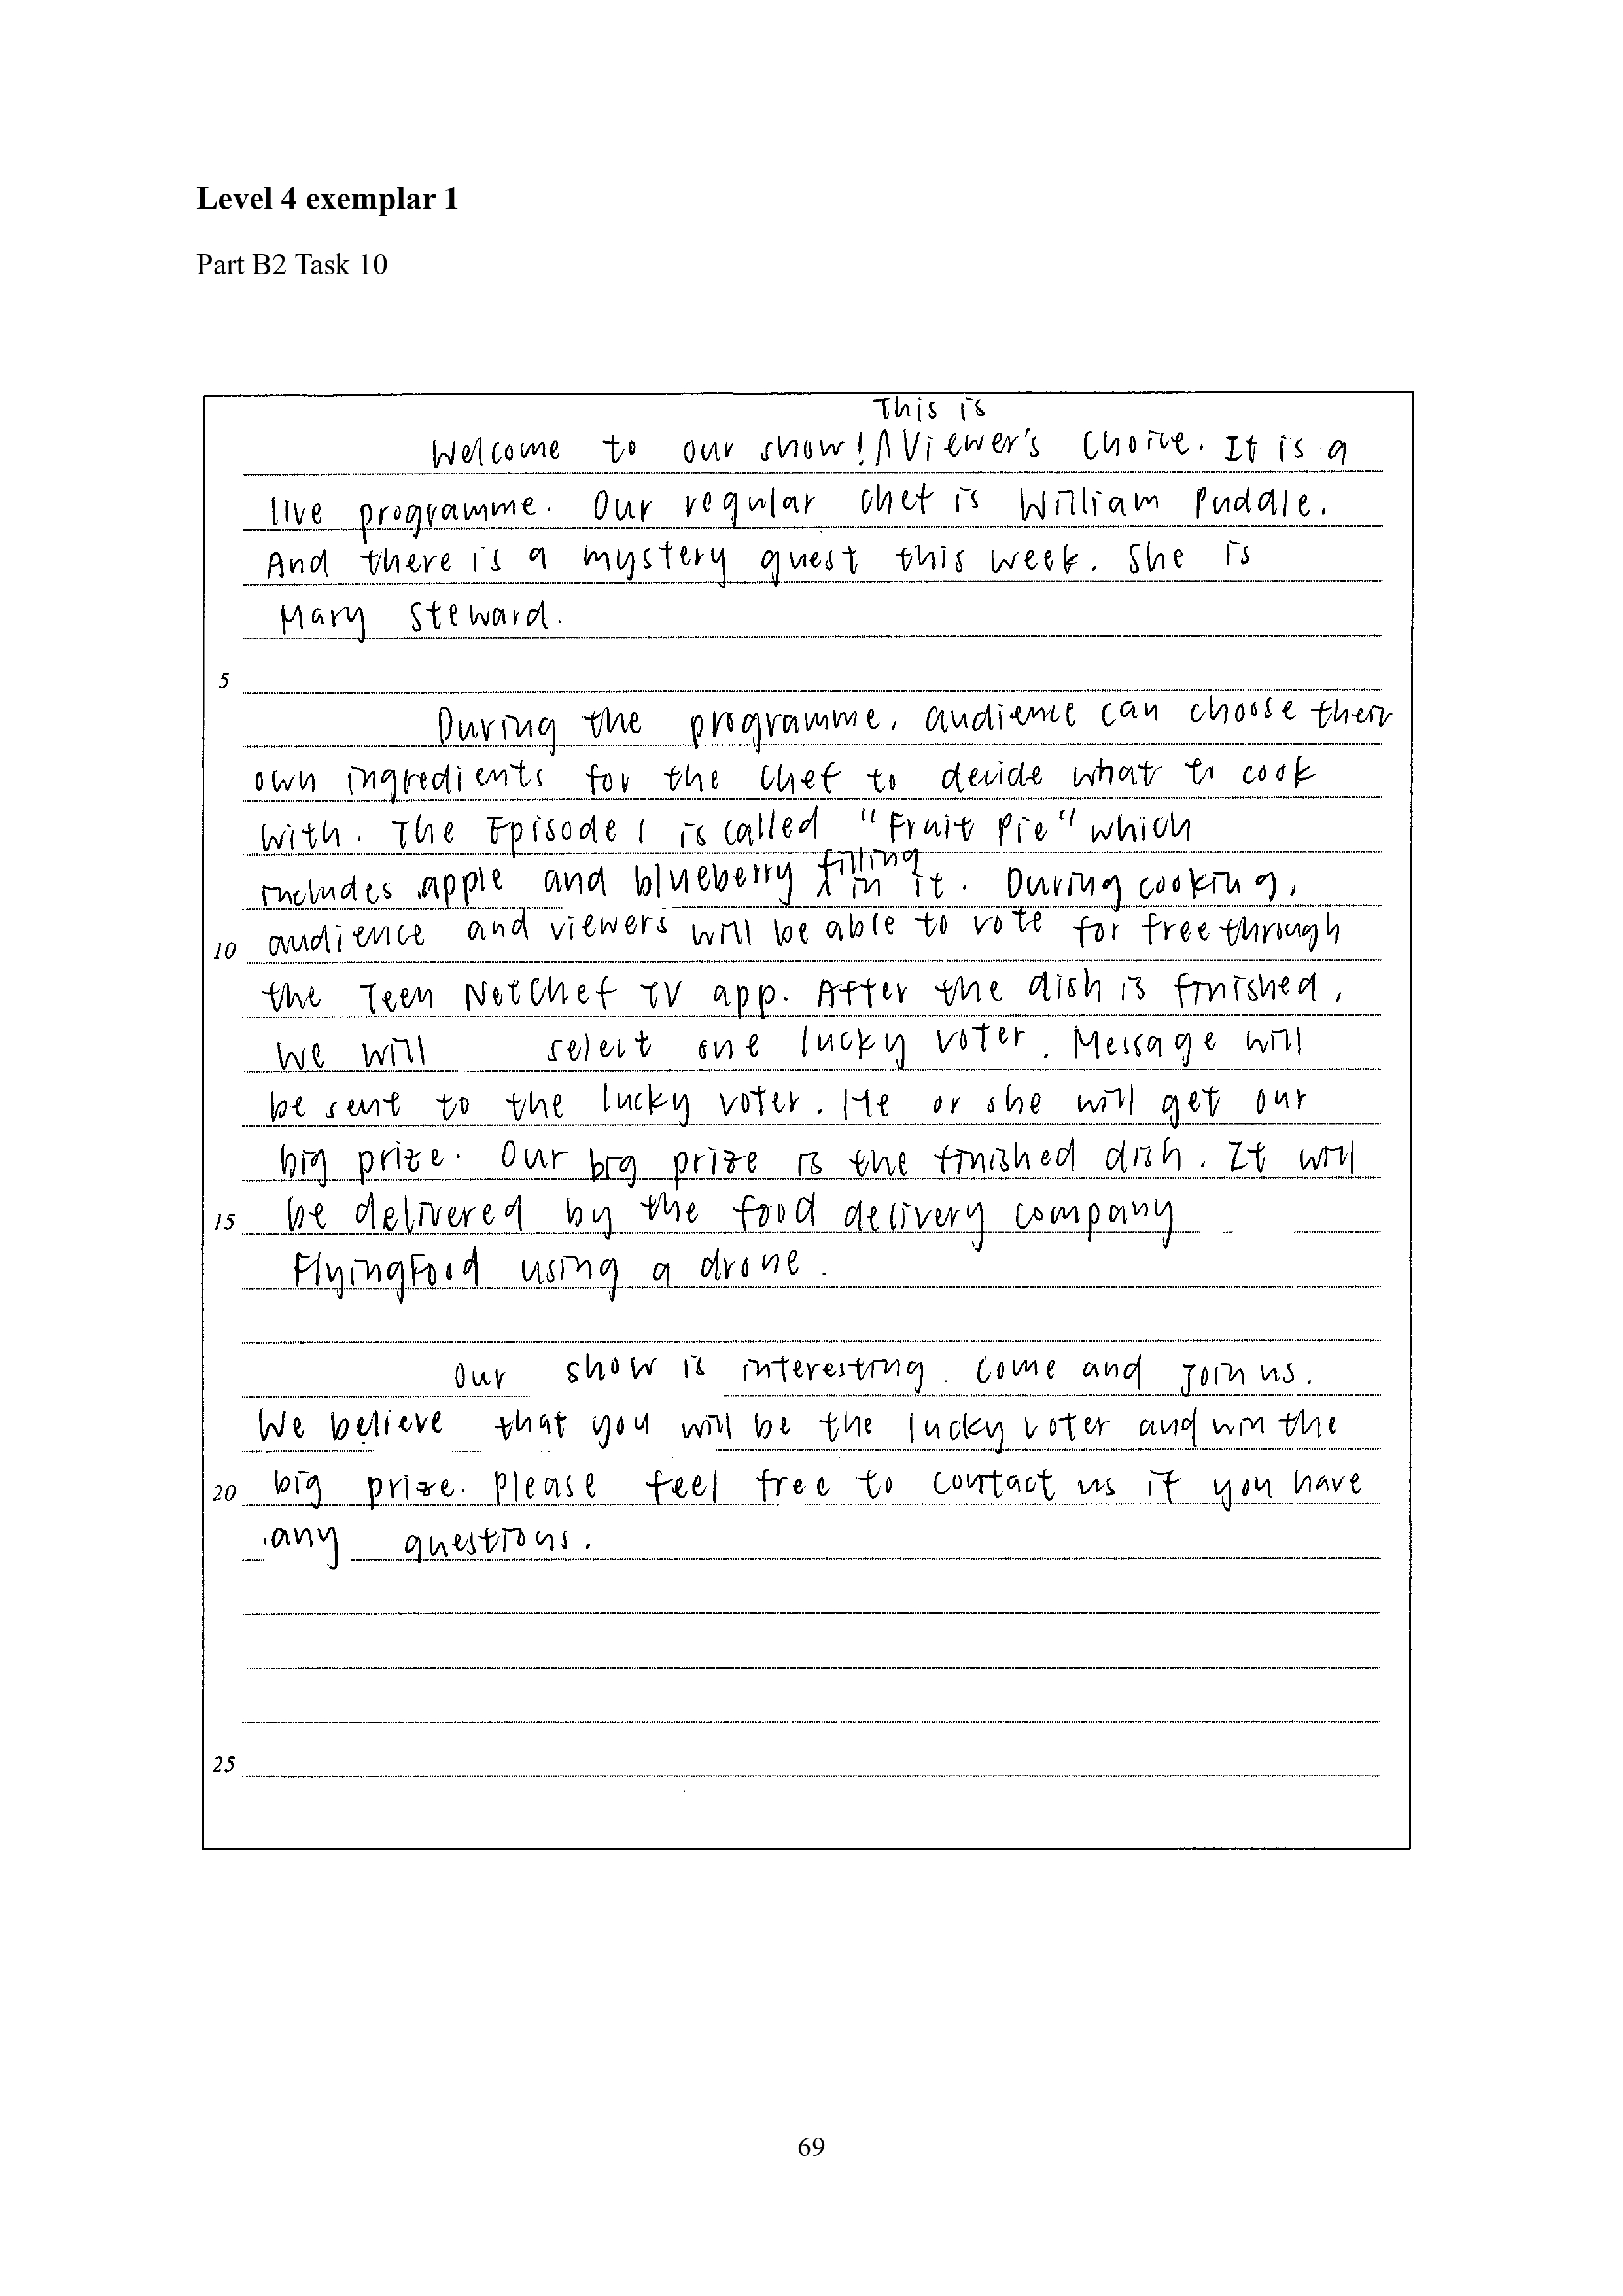 Level 4 exemplar 1
Part B2 Task 10
This is
Welcome to our show! ∧ Viewer's Choice. It is a
live programme. Our regular chef is William Puddle.
And there is a mystery guest this week. She is
Mary Steward.
5
During the programme, audience can choose their
own ingredients for the chef to decide what to cook
with. The Episode 1 is called "Fruit Pie" which
filling
includes apple and blueberry ∧ in it. During cooking,
10 audience and viewers will be able to vote for free through
the Teen NetChef TV app. After the dish is finished,
we will select one lucky voter. Message will
be sent to the lucky voter. He or she will get our
big prize. Our big prize is the finished dish. It will
15 be delivered by the food delivery company
FlyingFood using a drone.
Our show is interesting. Come and join us.
We believe that you will be the lucky voter and win the
20 big prize. Please feel free to contact us if you have
any questions.
25
69